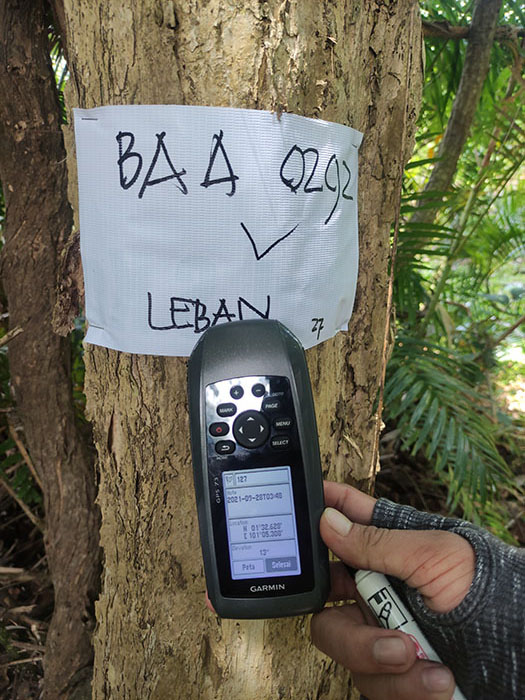 BAA 0292
✓
LEBAN 27
MARK
PAGE
MENU
SELECT
GPS 73
127
2021-09-28T03:48
Location
N 01°32.628'
E 101°05.300'
Elevation
Peta Selesai
GARMIN